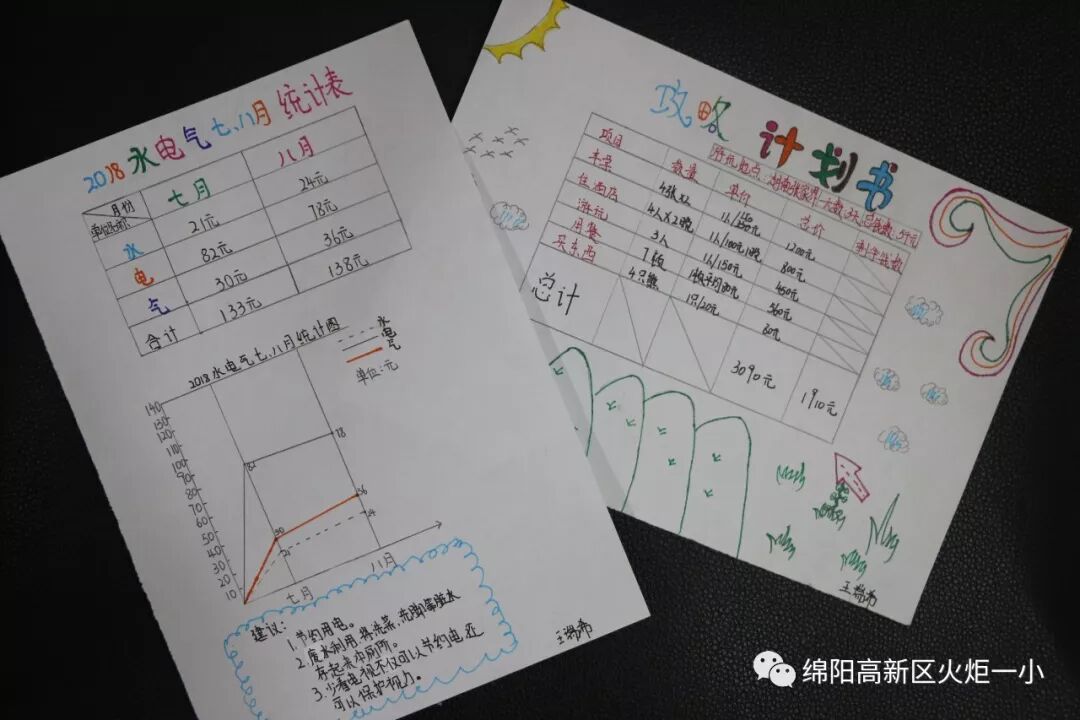 2018水电气七、八月统计表
月份 七月 八月
水 21元 24元
电 82元 78元
气 30元 36元
合计 133元 138元
2018水电气七、八月统计图
水
电
气
单位:元
140
130
120
110
100
90
80
70
60
50
40
30
20
10
82 78
30 36
21 24
七月 八月
建议:
1.节约用电。
2.废水利用,将洗菜、洗脚等脏水
存起来冲厕所。
3.少看电视不仅可以节约电,还
可以保护视力。
王瑞希
攻略计划书
游玩地点:湖南张家界 天数:3天 总钱数:5千元
项目 数量 单价 总价 剩余钱数
车票 4张X2 1200元
住酒店 4人X2晚 1人/100元1晚 800元
游玩 3人 1人/150元 450元
用餐 7顿 560元
买东西 4只熊 1只/20元 80元
总计 3090元 1910元
王瑞希
绵阳高新区火炬一小